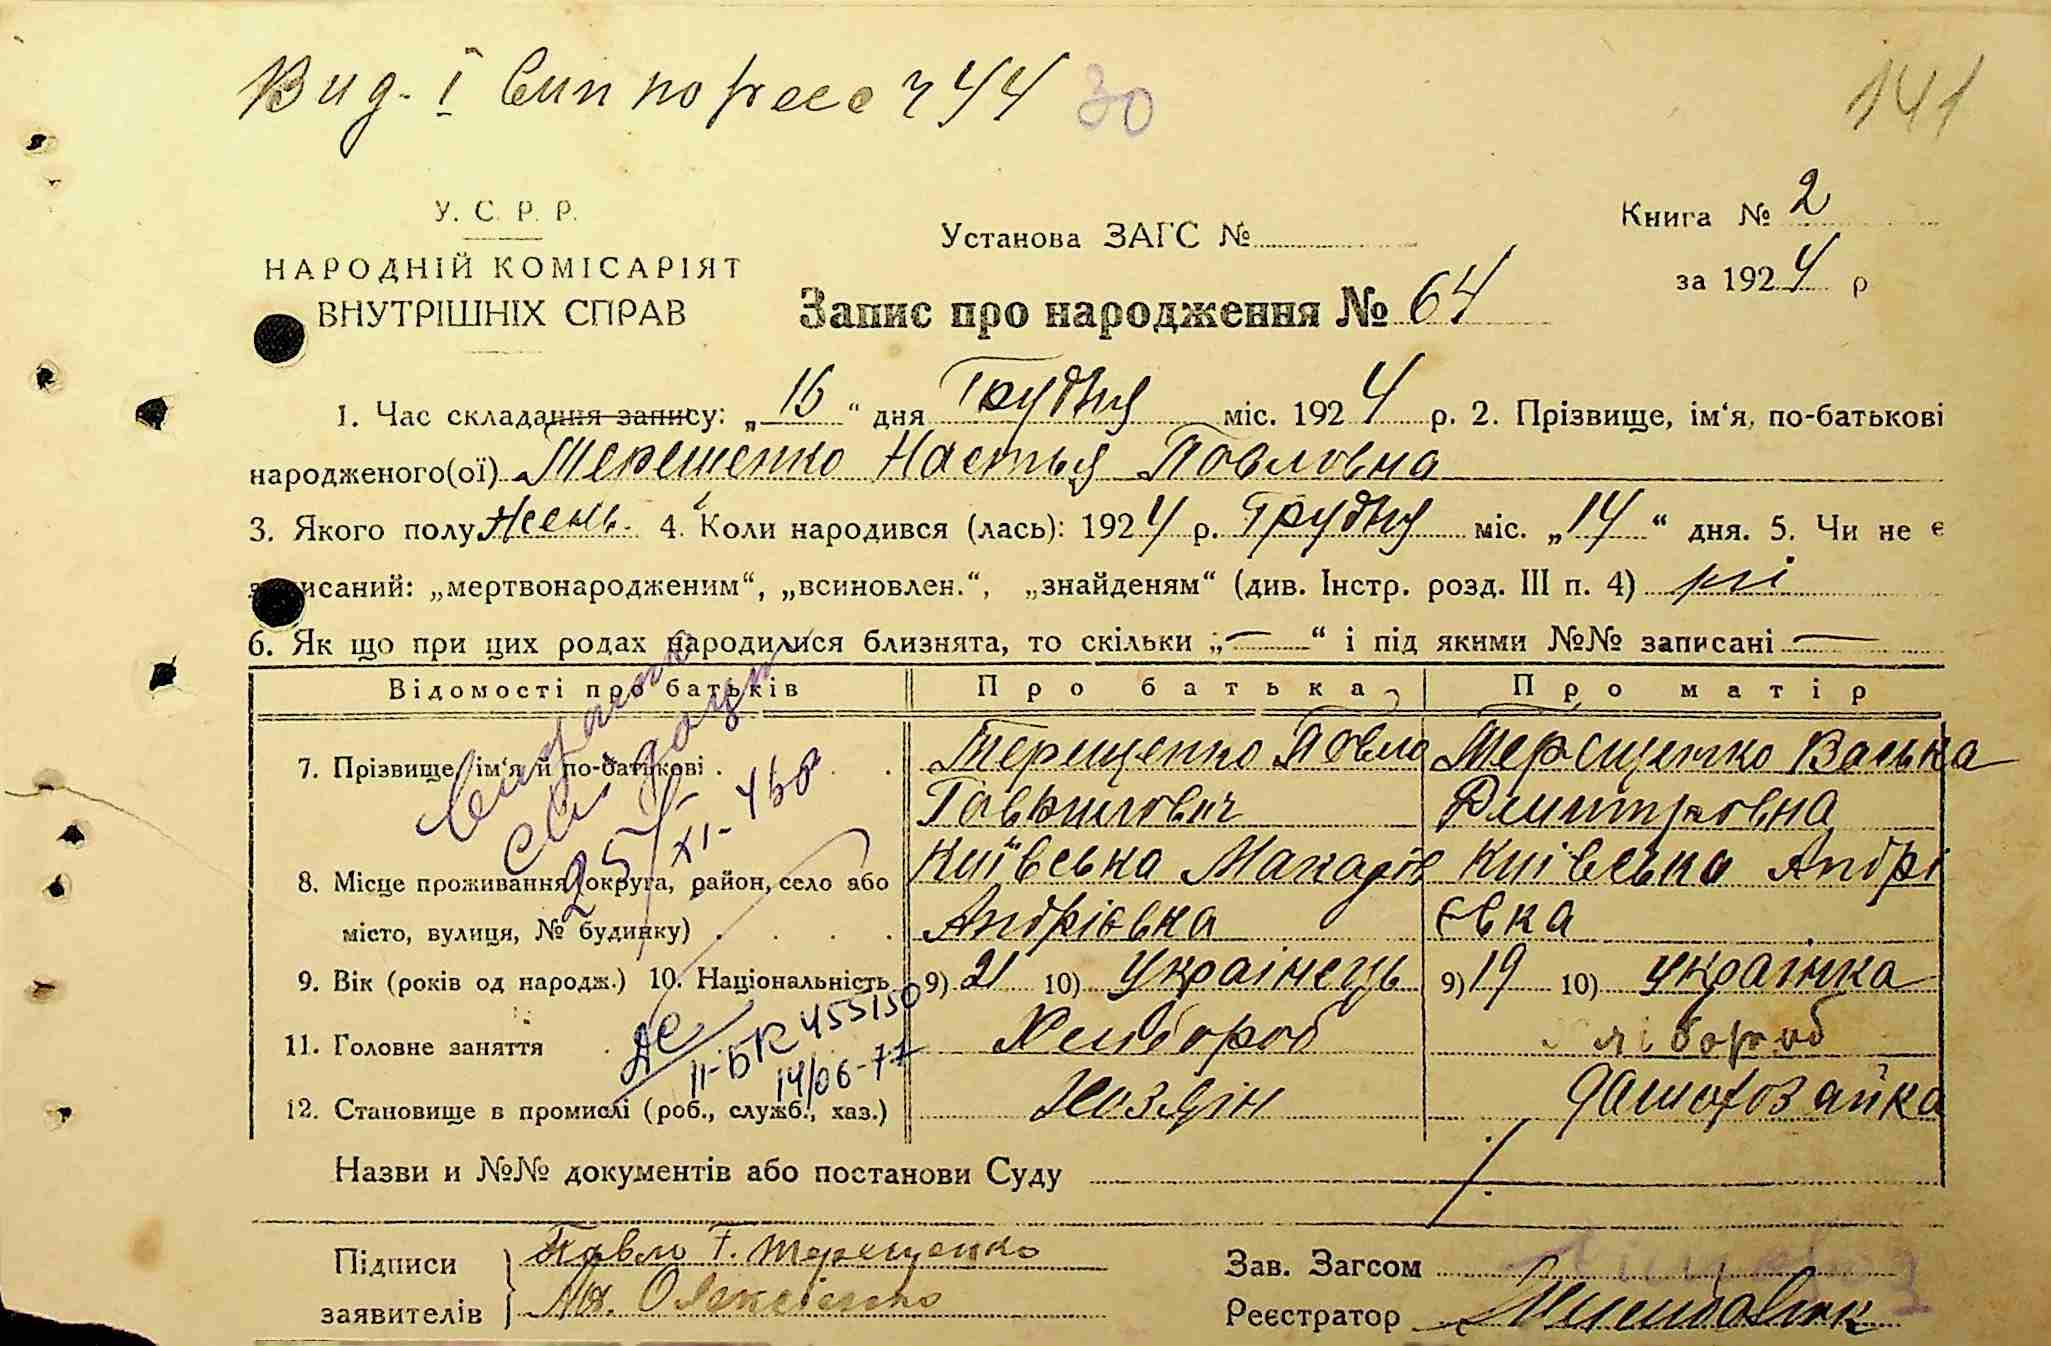 Вид. І 44 30
141
У. С. Р. Р.
НАРОДНІЙ КОМІСАРІЯТ
ВНУТРІШНІХ СПРАВ
Установа ЗАГС №
Книга № 2
за 1924 р
Запис про народження № 64
1. Час складання запису: „16“ дня Грудня міс. 1924 р. 2. Прізвище, ім‘я, по-батькові
народженого(ої) Терешенко Настья Павловна
3. Якого полу жень. 4. Коли народився (лась): 1924 р. Грудня міс. „14“ дня. 5. Чи не є
записаний: „мертвонародженим“, „всиновлен.“, „знайденям“ (див. Інстр. розд. III п. 4) ні
6. Як що при цих родах народилися близнята, то скільки „—“ і під якими №№ записані —
Відомості про батьків Про батька Про матір
7. Прізвище, ім‘я й по-батькові . . . Терещенко Павло Терещенко Васька
Гаврилович Дмитровна
8. Місце проживання (округа, район, село або Київська Макарів Київська Андрі
місто, вулиця, № будинку) . . . . Андрієвка євка
9. Вік (років од народж.) 10. Національність 9) 21 10) Украінець 9) 19 10) Украінка
11. Головне заняття Хлібороб Хлібороб
12. Становище в промислі (роб., служб., хаз.) Хозяїн домохозайка
25/XI-45р
ІІ-БК 455150
14/06-77
Назви и №№ документів або постанови Суду
Підписи Павло Г. Терещенко
заявителів Ол
Зав. Загсом
Реєстратор